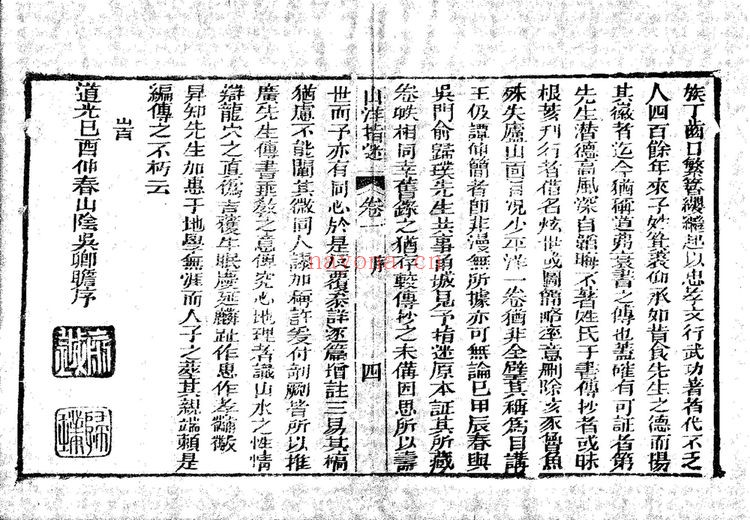 族丁齒口繁簪纓繼起以忠孝文行武功著者代不乏
人四百餘年來子妙箕義仰承如肯食先生之德而揚
其徽者迄今猶稱道弗衰書之傳也蓋確有可証者第
先生潛德高風深自韜晦不著姓氏于書傳抄者或昧
根荄刋行者借名炫世或圖簡略率意刪除亥豕魯魚
殊失廬山面目况少平洋一卷猶非全璧其稱爲目講
王伋譚仲簡者師非漫無所據亦可無論已甲辰春與
吳門俞歸璞先生共事甬城見予指迷原本証其所藏
卷帙相同幸舊錄之猶存較傳抄之未備因思所以壽
山洋指迷
卷一
序
四
世而予亦有同心於是反覆叅詳逐篇增註三易其稿
猶慮不能闡其微同人謬加稱許爰付剞劂皆所以推
廣先生傳書垂教之意俾究心地理者識山水之性情
辯龍穴之眞僞吉獲牛眠慶延麟趾作忠作孝黼黻
昇知先生加惠于地學無涯而人子之葬其親端賴是
編傳之不朽云
旹
道光己酉仰春山陰吳卿瞻序
nayona.cn